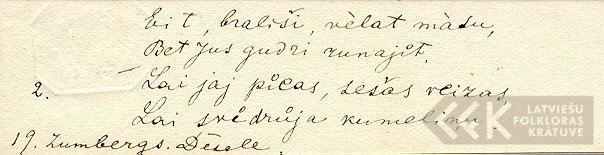 Eit, brališi, vèlat màsu,
Bet jus gudri runajit.
2. Lai jaj picas, sešas reizas
Lai svèdrùja kumeliņu.
19. Zumbergs. Dèsele.
LATVIEŠU
FOLKLORAS
KRĀTUVE